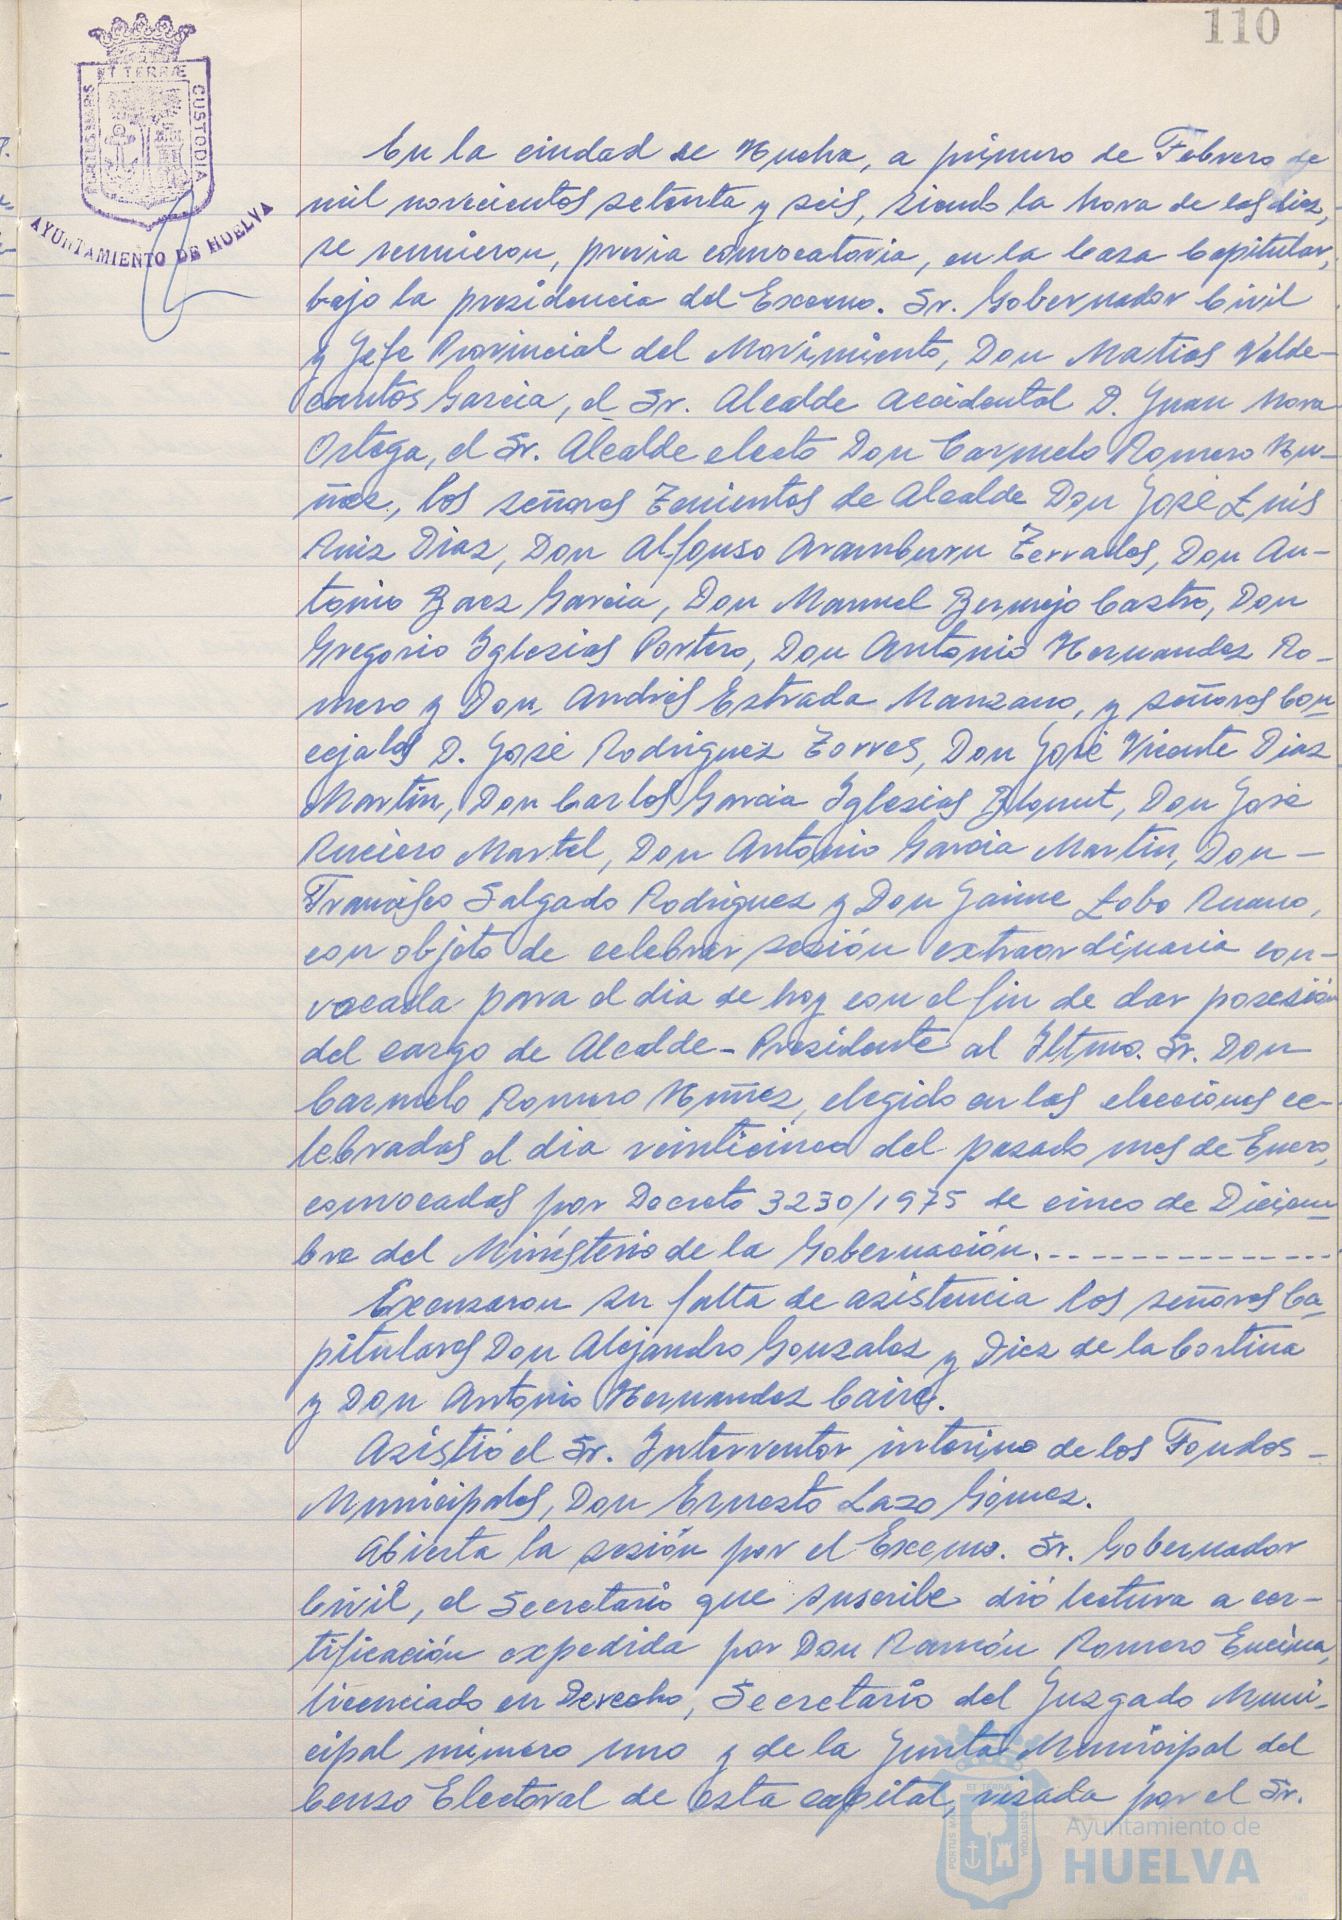 110
ET TERRÆ
PORTUS MARIS
CUSTODIA
AYUNTAMIENTO DE HUELVA
En la ciudad de Huelva, a primero de Febrero de
mil novecientos setenta y seis, siendo la hora de las diez,
se reunieron, previa convocatoria, en la Casa Capitular,
bajo la presidencia del Excmo. Sr. Gobernador Civil
y Jefe Provincial del Movimiento, Don Matias Valde-
cantos Garcia, el Sr. Alcalde accidental D. Juan Mora
Ortega, el Sr. Alcalde electo Don Carmelo Romero Nu-
ñez, los señores Tenientes de Alcalde Don José Luis
Ruiz Diaz, Don Alfonso Aramburu Terrades, Don An-
tonio Baez Garcia, Don Manuel Bermejo Castro, Don
Gregorio Iglesias Portero, Don Antonio Hernandez Ro-
mero y Don Andrés Estrada Manzano, y señores Con-
cejales D. José Rodriguez Torres, Don José Vicente Diaz
Martin, Don Carlos Garcia Iglesias Blanut, Don José
Ruciero Martel, Don Antonio Garcia Martin, Don -
Francisco Salgado Rodriguez y Don Jaime Lobo Ruano,
con objeto de celebrar sesión extraordinaria con-
vocada para el dia de hoy con el fin de dar posesión
del cargo de Alcalde-Presidente al Iltmo. Sr. Don
Carmelo Romero Nuñez, elegido en las elecciones ce-
lebradas el dia veinticinco del pasado mes de Enero,
convocadas por Decreto 3230/1975 de cinco de Diciem-
bre del Ministerio de la Gobernación.--------------
Excusaron su falta de asistencia los señores Ca-
pitulares Don Alejandro Gonzalez y Diez de la Cortina
y Don Antonio Hernandez Cairé.
Asistió el Sr. Interventor interino de los Fondos -
Municipales, Don Ernesto Lazo Gómez.
Abierta la sesión por el Excmo. Sr. Gobernador
Civil, el Secretario que suscribe dió lectura a cer-
tificación expedida por Don Ramón Romero Encina,
licenciado en Derecho, Secretario del Juzgado Muni-
cipal número uno y de la Junta Municipal del
Censo Electoral de esta capital, visada por el Sr.
ET TERRÆ
PORTUS MARIS
CUSTODIA
Ayuntamiento de
HUELVA